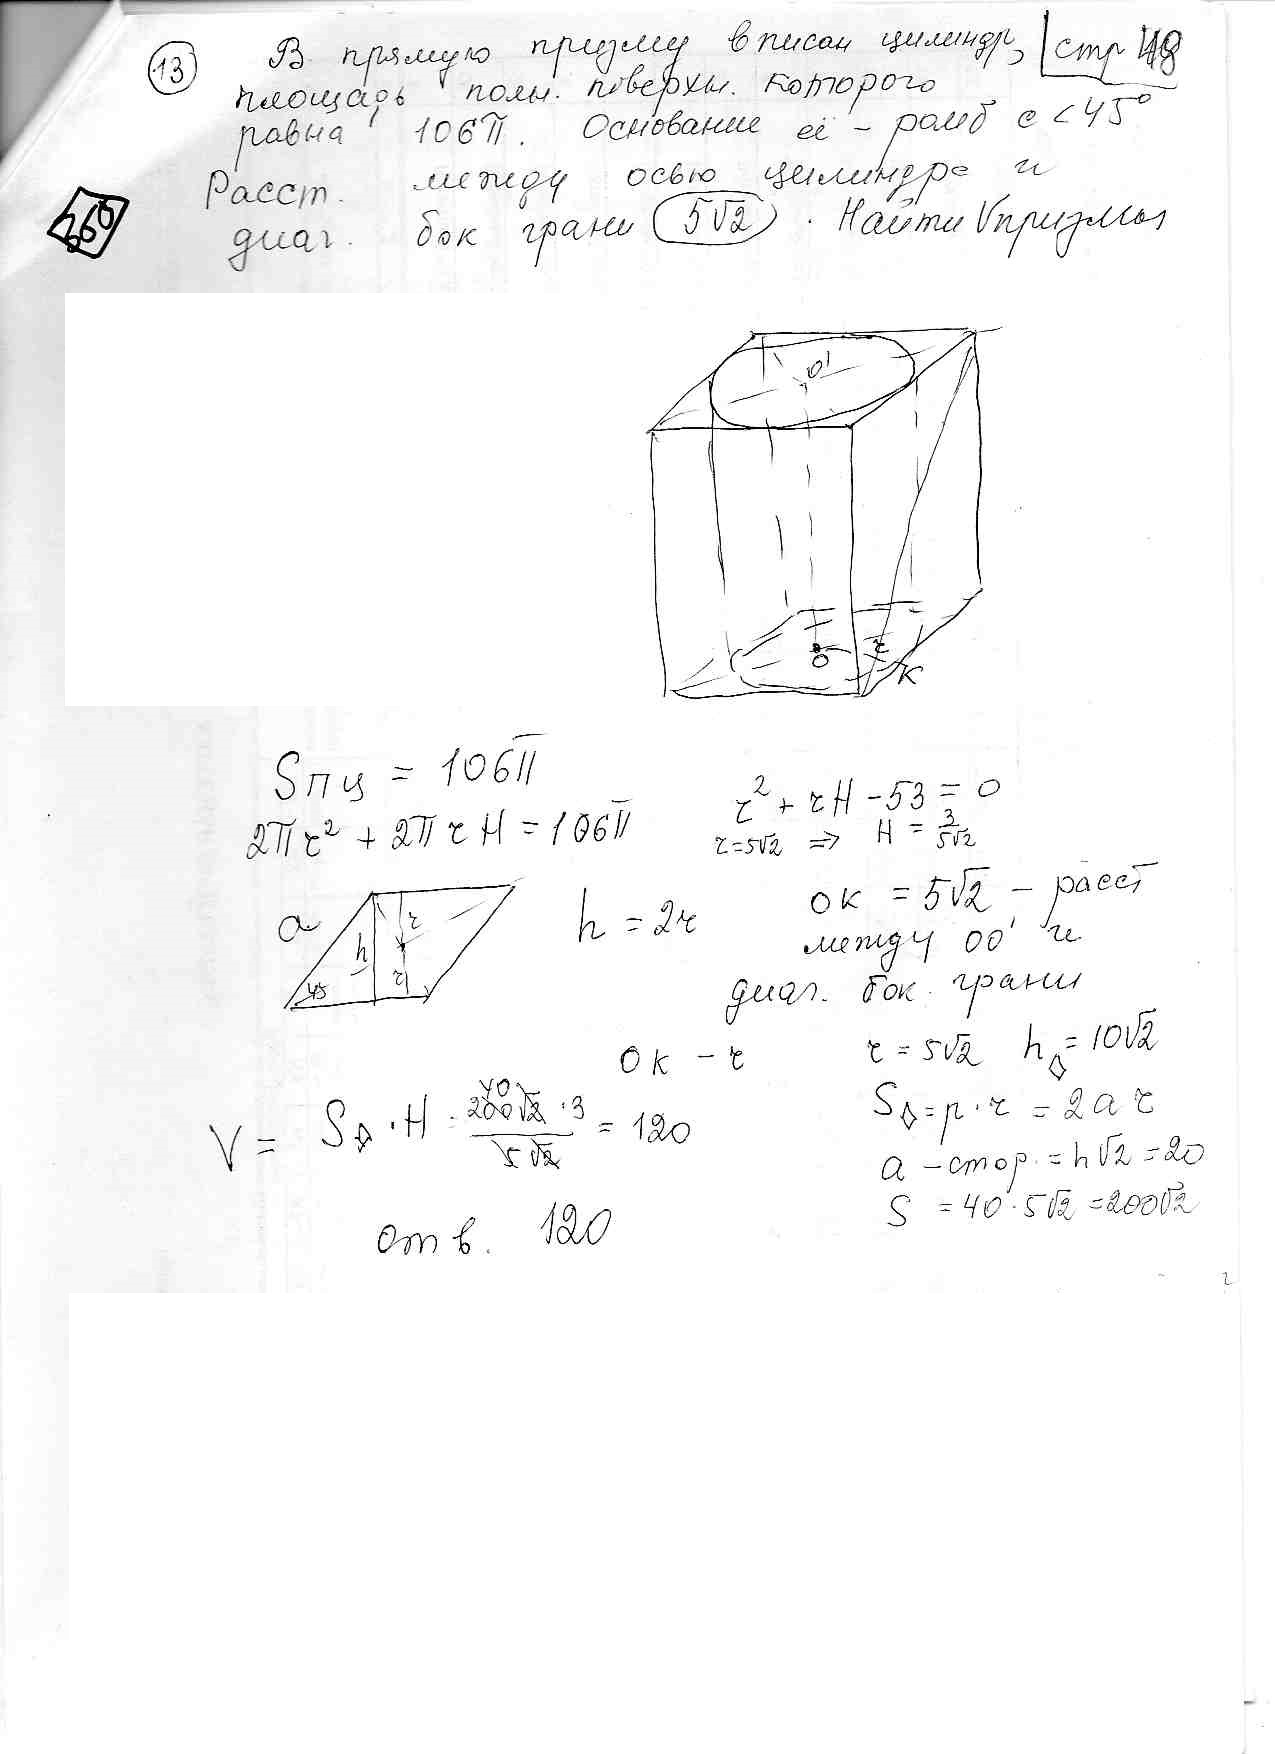 13
В прямую призму вписан цилиндр, стр 48
площадь полн. поверхн. которого
равна 106π. Основание её - ромб с <45°
Расст. между осью цилиндра и
диаг. бок грани 5√2. Найти Vпризмы
360
O'
O r
K
Sпц = 106π
2πr² + 2πrH = 106π
r² + rH - 53 = 0
r=5√2 => H = 3/5√2
a h r r 45
h = 2r
OK = 5√2 - расст
между OO' и
диаг. бок. грани
OK - r
r = 5√2 h◊ = 10√2
S◊ = p · r = 2ar
V = S◊ · H = 200√2 · 3 / 5√2 = 120
40
a - стор. = h√2 = 20
S = 40 · 5√2 = 200√2
отв. 120